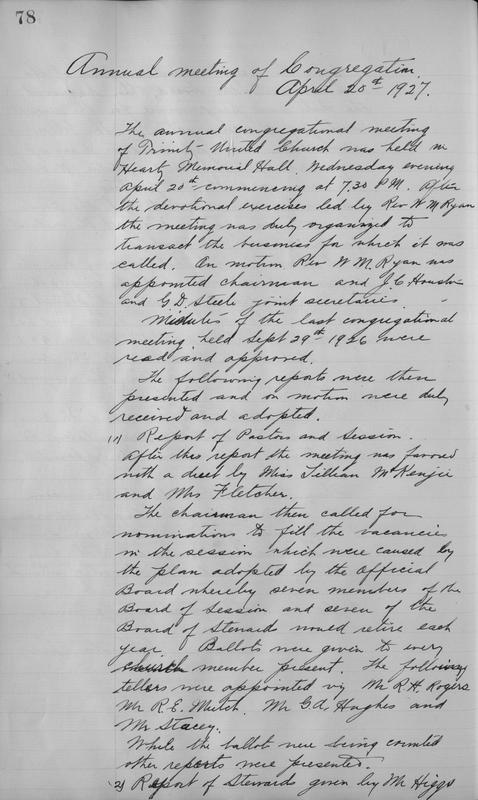 78
Annual meeting of Congregation
April 20th 1927.
The annual congregational meeting
of Trinity United Church was held in
Heartz Memorial Hall, Wednesday evening
April 20th commencing at 7.30 P.M. After
the devotional exercises led by Rev W M Ryan
the meeting was duly organized to
transact the business for which it was
called. On motion Rev W M. Ryan was
appointed chairman and J. C. Houston
and G D. Steele joint secretaries.
Minutes of the last congregational
meeting held Sept 29th 1926 were
read and approved.
The following reports were then
presented and on motion were duly
received and adopted.
(1) Report of Pastors and Session.
After this report the meeting was favored
with a duet by Miss Lillian McKenzie
and Mrs Fletcher.
The chairman then called for
nominations to fill the vacancies
in the session which were caused by
the plan adopted by the Official
Board whereby seven members of the
Board of Session and seven of the
Board of Stewards would retire each
year. Ballots were given to every
church member present. The following
tellers were appointed viz Mr R. H. Rogers
Mr R. E. Mutch. Mr G. A. Hughes and
Mr Stacey.
While the ballot were being counted
other reports were presented.
(2) Report of Stewards given by Mr Higgs